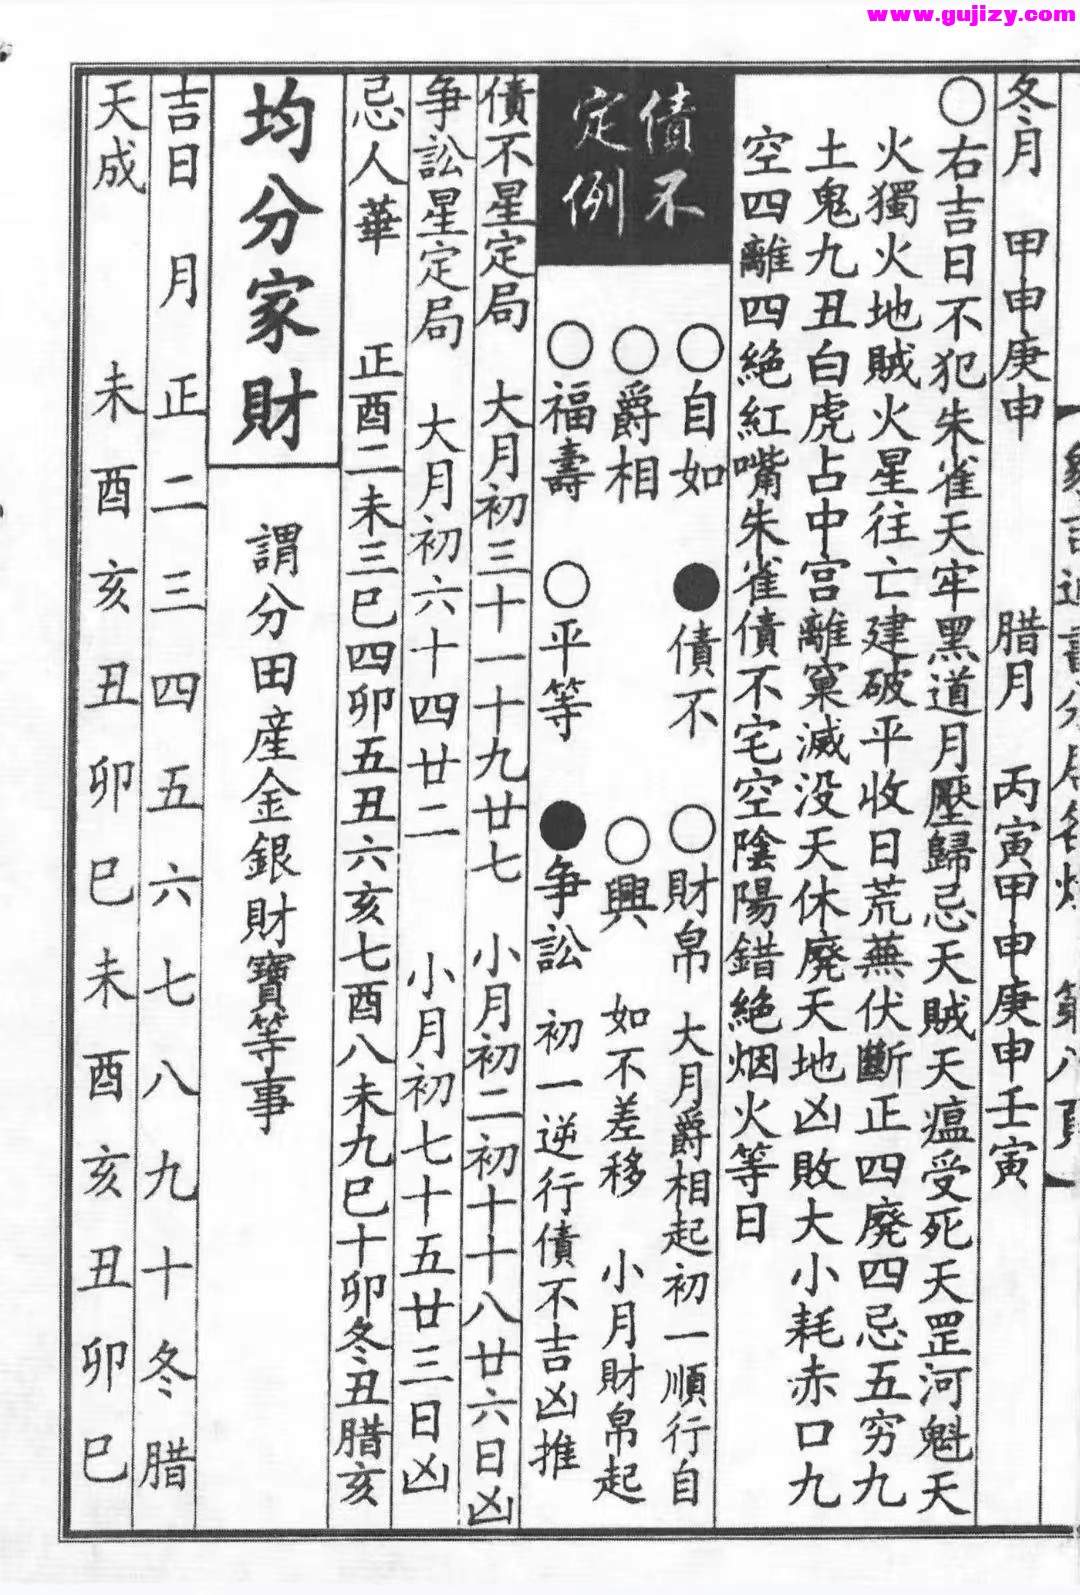 www.gujizy.com
冬月　甲申庚申　腊月　丙寅甲申庚申壬寅
○右吉日不犯朱雀天牢黑道月壓歸忌天賊天瘟受死天罡河魁天
火獨火地賊火星往亡建破平收日荒蕪伏斷正四廢四忌五穷九
土鬼九丑白虎占中宫離窠滅没天休廢天地凶敗大小耗赤口九
空四離四絶紅嘴朱雀債不宅空陰陽錯絶烟火等日
債不
定例
○自如　●債不　○財帛　大月爵相起初一順行自
○爵相　○興　如不差移　小月財帛起
○福壽　○平等　●争訟　初一逆行債不吉凶推
債不星定局　大月初三十一十九廿七　小月初二初十十八廿六日凶
争訟星定局　大月初六十四廿二　小月初七十五廿三日凶
忌人華　正酉二未三巳四卯五丑六亥七酉八未九巳十卯冬丑腊亥
均分家財　謂分田産金銀財寶等事
吉日　月　正　二　三　四　五　六　七　八　九　十　冬　腊
天成　未　酉　亥　丑　卯　巳　未　酉　亥　丑　卯　巳